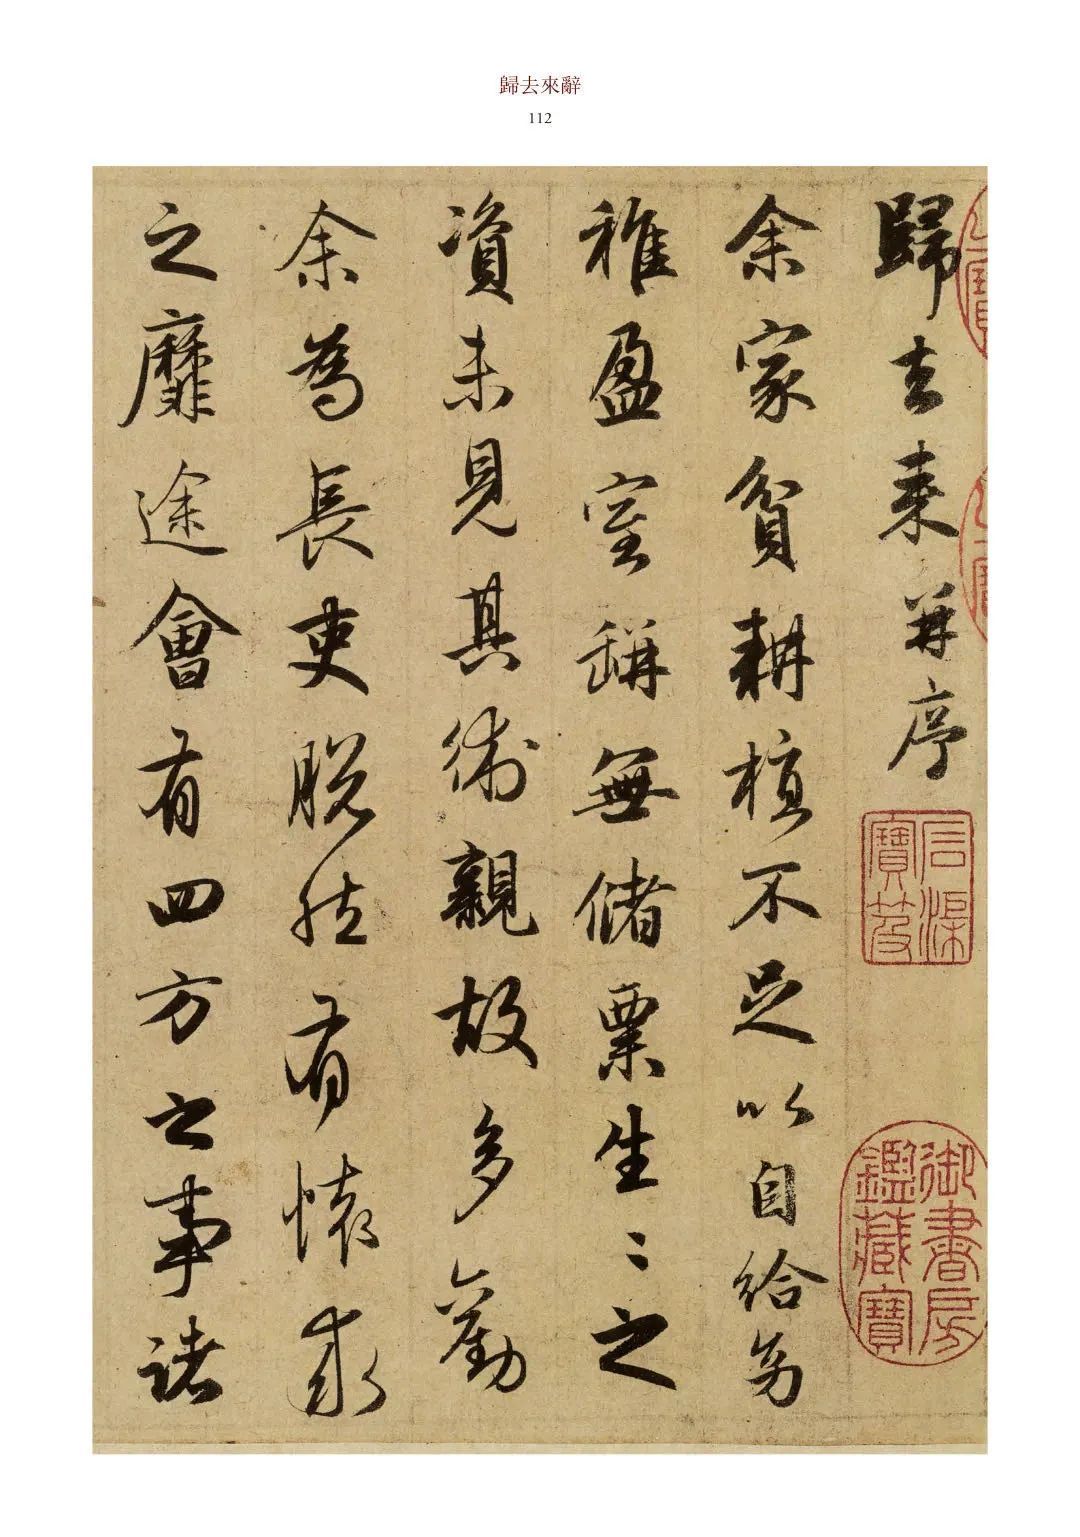 歸去來辭
112
歸去来并序
余家貧耕植不足以自給幼
稚盈室缾無儲粟生〻之
資未見其術親故多勸
余為長吏脱然有懷求
之靡途會有四方之事諸
石渠寶笈
御書房鑑藏寶